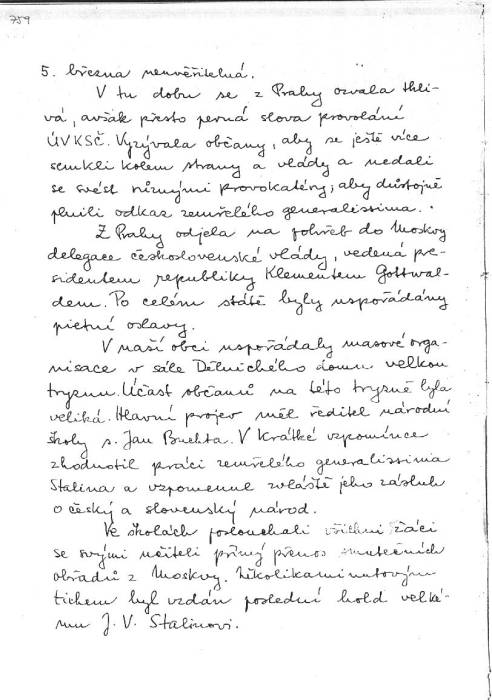 759
5. března neuvěřitelná.
V tu dobu se z Prahy ozvala thli-
vá, avšak přesto pevná slova provolání
ÚV KSČ. Vyzývala občany, aby se ještě více
semkli kolem strany a vlády a nedali
se svést různými provokatéry, aby důstojně
plnili odkaz zemřelého generalissima.
Z Prahy odjela na pohřeb do Moskvy
delegace československé vlády, vedená pre-
sidentem republiky Klementem Gottwal-
dem. Po celém státě byly uspořádány
pietní oslavy.
V naší obci uspořádaly masové orga-
nisace v sále Dělnického domu velkou
tryznu. Účast občanů na této tryzně byla
veliká. Hlavní projev měl ředitel národní
školy s. Jan Buchta. V krátké vzpomínce
zhodnotil práci zemřelého generalissima
Stalina a vzpomenul zvláště jeho zásluh
o český a slovenský národ.
Ve školách poslouchali všichni žáci
se svými učiteli přímý přenos smutečních
obřadů z Moskvy. Několikaminutovým
tichem byl vzdán poslední hold velké-
mu J. V. Stalinovi.